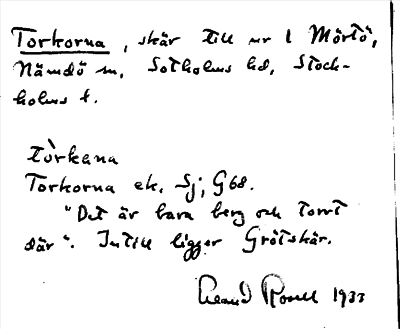 Torkorna, skär till nr 1 Mörtö,
Nämdö sn, Sotholms hd, Stock-
holms l.
tòrkana
Torkorna ek. Sj, G68.
"Det är bara berg och torrt
där". Intill ligger Grötskär.
1933